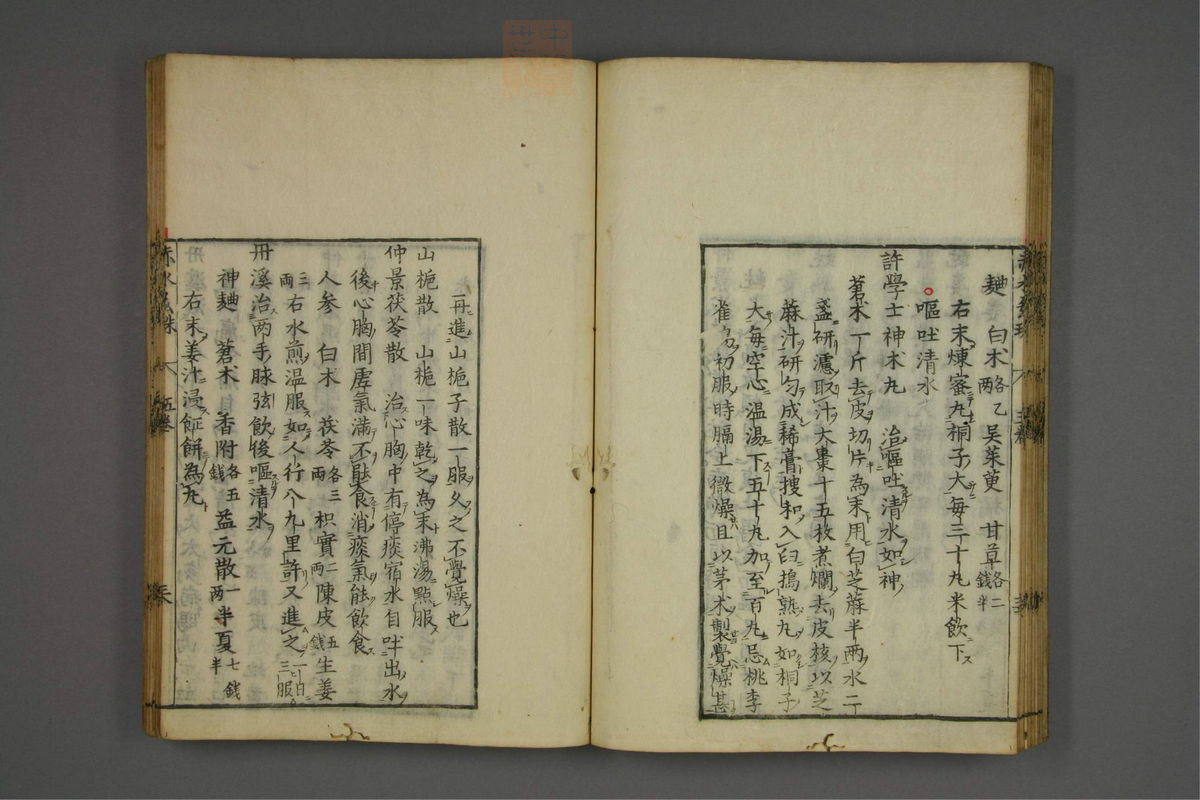 麯 白朮各乙两 吳茱萸 甘草各二錢半
右末煉蜜丸桐子大每三十丸米飲下
嘔吐清水
許學士神朮丸 治嘔吐清水如神
蒼朮一斤去皮切片為末用白芝蔴半两水二
盞研濾取汁大棗十五枚煮爛去皮核以芝
蔴汁研匀成稀膏搜和入臼搗熟丸如桐子
大每空心温湯下五十丸加至百丸忌桃李
雀初服時膈上微燥且以茅朮製覺燥甚
再進山梔子散一服久之不覺燥也
山梔散 山梔一味乾之為末沸湯點服
仲景茯苓散 治心胸中有停痰宿水自吐出水
後心胸間虚氣滿不能食消痰氣能飲食
人參 白朮 茯苓各三两 枳實二两 陳皮五錢 生姜
三两 右水煎温服如人行八九里許又進之一日三服
丹溪治两手脉弦飲後嘔清水
神麯 蒼朮 香附各五錢 益元散一两 半夏七錢半
右末姜汁浸蒸餅為丸
赤水玄珠